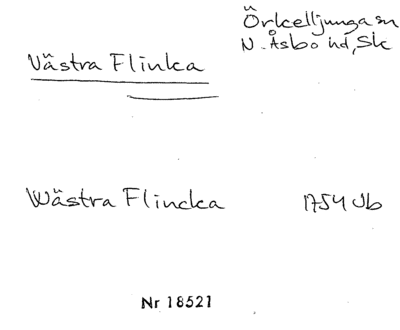 Örkelljunga sn
N. Åsbo hd, Sk
Västra Flinka
Wästra Flincka 1754 Jb
Nr 18521